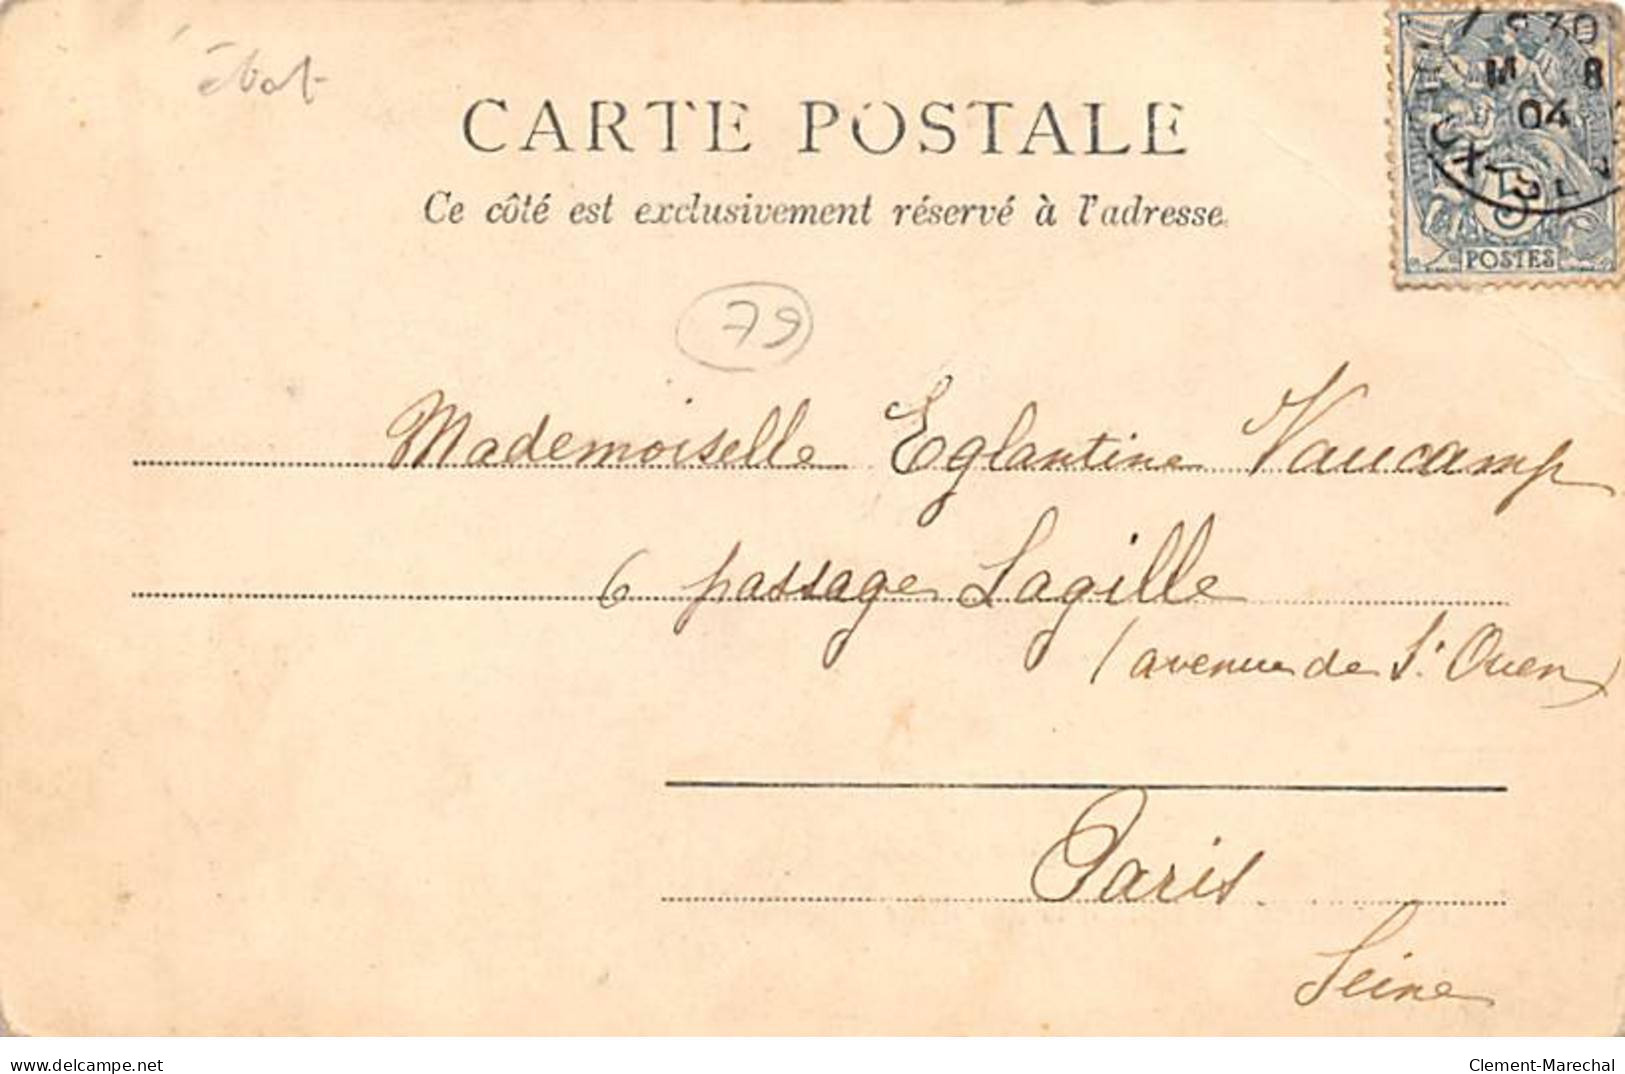 état
CARTE POSTALE
Ce côté est exclusivement réservé à l'adresse.
8 30
M 8
04
POSTES
79
Mademoiselle Eglantine Vaucamp
6 passage Lagille
(avenue de St Ouen)
Paris
Seine
www.delcampe.net
Clement-Marechal